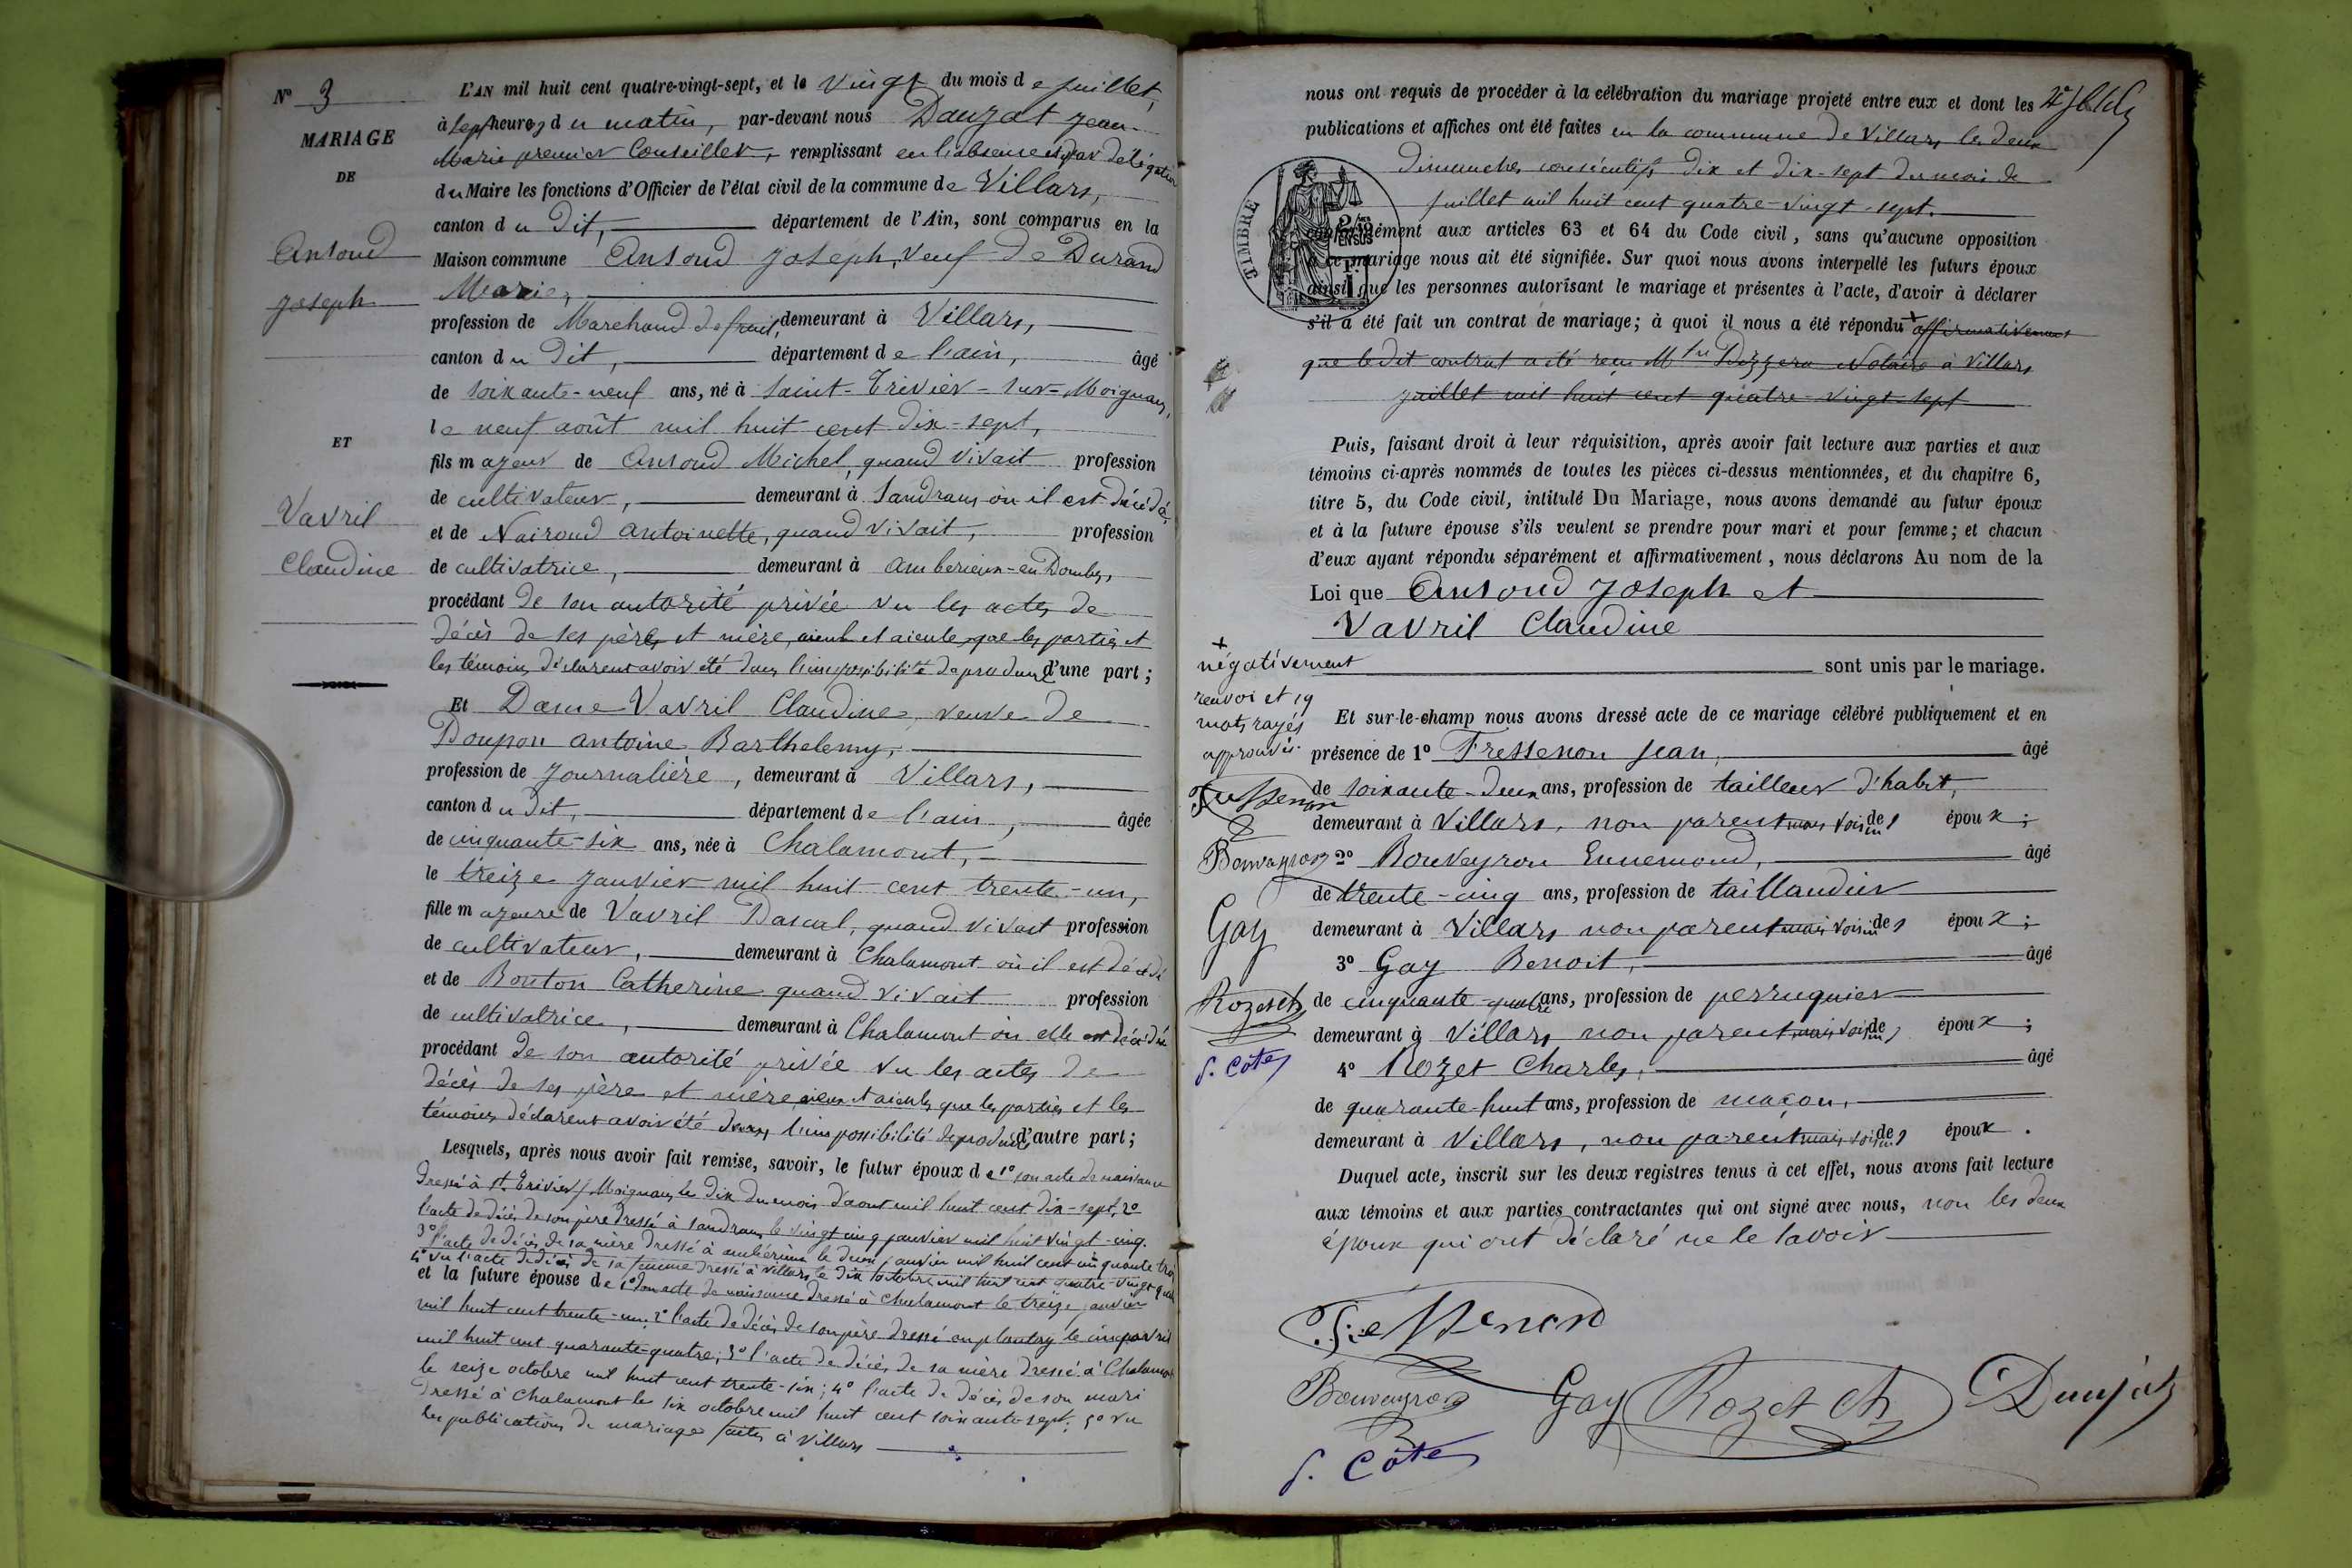 N° 3
MARIAGE
DE
Ansoud
Joseph
ET
Vavril
Claudine
L'AN mil huit cent quatre-vingt-sept, et le vingt du mois de juillet,
à sept heures du matin, par-devant nous Dauzat Jean-
Marie premier Conseiller, remplissant en l'absence et par délégation
du Maire les fonctions d'Officier de l'état civil de la commune de Villars,
canton du Dit, département de l'Ain, sont comparus en la
Maison commune Ansoud Joseph, veuf de Durand
Marie,
profession de Marchand de fruit, demeurant à Villars,
canton du Dit, département de l'ain, âgé
de soixante-neuf ans, né à Saint-Trivier-sur-Moignans,
le neuf août mil huit cent dix-sept,
fils majeur de Ansoud Michel, quand vivait profession
de cultivateur, demeurant à Sandrans où il est décédé,
et de Nairoud antoinette, quand vivait, profession
de cultivatrice, demeurant à amberieux-en-Dombes,
procédant de son autorité privée vu les actes de
décès de ses père et mère, aieuls et aieules que les parties et
les témoins déclarent avoir été dans l'impossibilité de produire d'une part;
Et Dame Vavril Claudine, veuve de
Doupon antoine Barthelemy,
profession de Journalière, demeurant à Villars,
canton du dit, département de l'ain, âgée
de cinquante-six ans, née à Chalamont,
le treize janvier mil huit cent trente-un,
fille majeure de Vavril Pascal, quand vivait profession
de cultivateur, demeurant à Chalamont où il est décédé
et de Bouton Catherine quand vivait profession
de cultivatrice, demeurant à Chalamont où elle est décédée
procédant de son autorité privée vu les actes de
décès de ses père et mère, aieux et aieules que les parties et les
témoins déclarent avoir été dans l'impossibilité de produire d'autre part;
Lesquels, après nous avoir fait remise, savoir, le futur époux de 1° son acte de naissance
Dressé à St. Trivier s/ Moignans le dix du mois d'aout mil huit cent dix-sept, 2°
l'acte de décès de son père dressé à Sandrans le vingt cinq janvier mil huit vingt-cinq.
3° l'acte de décès de sa mère dressé à ambérieux le deux janvier mil huit cent cinquante trois
4° vu l'acte de décès de sa femme dressé à Villars le dix octobre mil huit cent quatre-vingt
et la future épouse de 1° son acte de naissance dressé à Chalamont le treize janvier
mil huit cent trente-un; 2° l'acte de décès de son père dressé au plantay le cinq avril
mil huit cent quarante-quatre; 3° l'acte de décès de sa mère dressé à Chalamont
le seize octobre mil huit cent trente-six; 4° l'acte de décès de son mari
dressé à Chalamont le six octobre mil huit cent soixante-sept; 5° vu
les publications de mariage faites à Villars
nous ont requis de procéder à la célébration du mariage projeté entre eux et dont les
publications et affiches ont été faites en la commune de Villars les deux
dimanches consécutifs dix et dix-sept du mois de
juillet mil huit cent quatre-vingt-sept.
TIMBRE
conformément aux articles 63 et 64 du Code civil, sans qu'aucune opposition
à ce mariage nous ait été signifiée. Sur quoi nous avons interpellé les futurs époux
ainsi que les personnes autorisant le mariage et présentes à l'acte, d'avoir à déclarer
s'il a été fait un contrat de mariage; à quoi il nous a été répondu + affirmativement
que le dit contrat a été reçu Mtre Notaire à Villars
juillet mil huit cent quatre-vingt-sept
Puis, faisant droit à leur réquisition, après avoir fait lecture aux parties et aux
témoins ci-après nommés de toutes les pièces ci-dessus mentionnées, et du chapitre 6,
titre 5, du Code civil, intitulé Du Mariage, nous avons demandé au futur époux
et à la future épouse s'ils veulent se prendre pour mari et pour femme; et chacun
d'eux ayant répondu séparément et affirmativement, nous déclarons Au nom de la
Loi que Ansoud Joseph et
Vavril Claudine
sont unis par le mariage.
+
négativement
renvoi et 19
mots rayés
approuvés.
Fressenon
Bouvayron
Gay
Rozet ch
P. Côte
Et sur-le-champ nous avons dressé acte de ce mariage célébré publiquement et en
présence de 1° Fressenon Jean, âgé
de soixante-deux ans, profession de tailleur d'habit,
demeurant à Villars, non parent mais voisin des époux;
2° Bouveyron Ennemond, âgé
de trente-cinq ans, profession de taillandier
demeurant à Villars non parent mais voisin des époux;
3° Gay Benoit, âgé
de cinquante-quatre ans, profession de perruquier
demeurant à Villars non parent mais voisin des époux;
4° Rozet Charles, âgé
de quarante-huit ans, profession de maçon,
demeurant à Villars, non parent mais voisin des époux.
Duquel acte, inscrit sur les deux registres tenus à cet effet, nous avons fait lecture
aux témoins et aux parties contractantes qui ont signé avec nous, non les deux
époux qui ont déclaré ne le savoir
Fressenon
Bouvayron
Gay
Rozet Ch
Dauzat
P. Côte